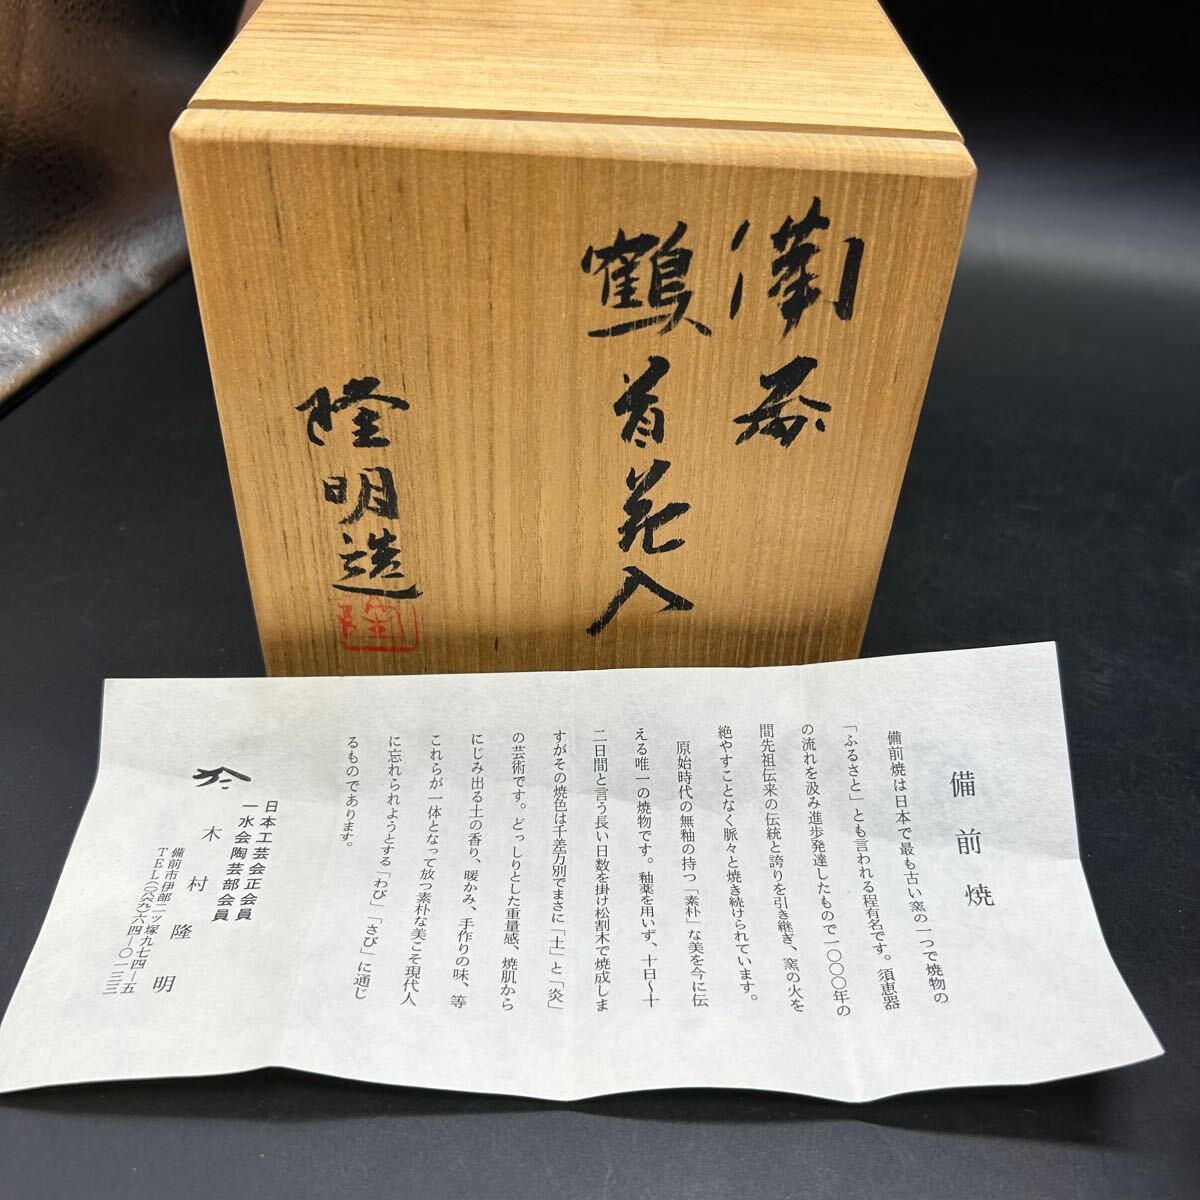 備前
鶴首花入
隆明造
備前焼
備前焼は日本で最も古い窯の一つで焼物の
「ふるさと」とも言われる程有名です。須恵器
の流れを汲み進歩発達したもので一〇〇〇年の
間先祖伝来の伝統と誇りを引き継ぎ、窯の火を
絶やすことなく脈々と焼き続けられています。
原始時代の無釉の持つ「素朴」な美を今に伝
える唯一の焼物です。釉薬を用いず、十日〜十
二日間と言う長い日数を掛け松割木で焼成しま
すがその焼色は千差万別でまさに「土」と「炎」
の芸術です。どっしりとした重量感、焼肌から
にじみ出る土の香り、暖かみ、手作りの味、等
これらが一体となって放つ素朴な美こそ現代人
に忘れられようとする「わび」「さび」に通じ
るものであります。
日本工芸会正会員
一水会陶芸部会員
木村隆明
備前市伊部二ッ塚九七四―五
TEL〇八六九―六四―〇一三三